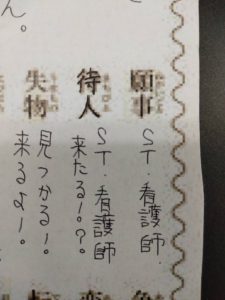 願事
ST・看護師
待人
ST・看護師
来たる!?
失物
見つかる!
来るよー。
ん。